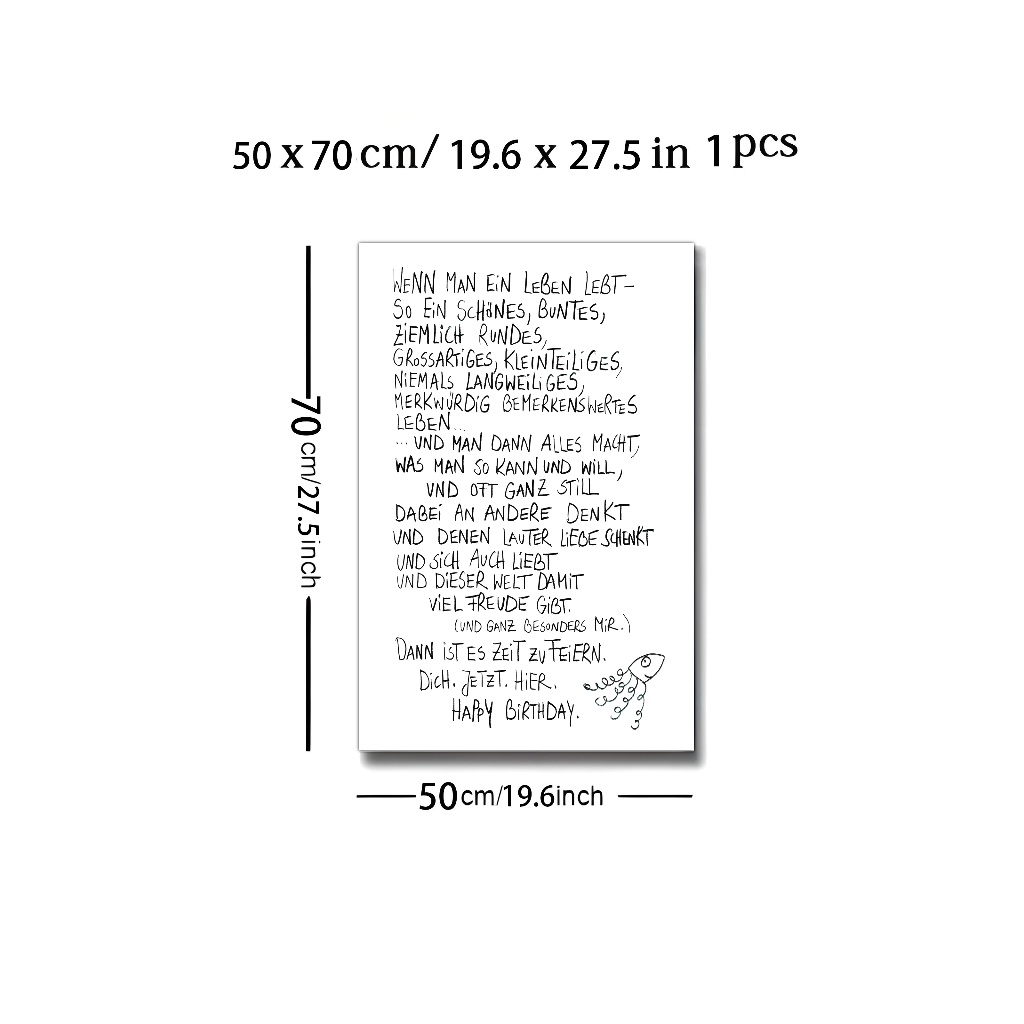 50 x 70 cm/ 19.6 x 27.5 in 1 pcs
70 cm/27.5inch
WENN MAN EiN LEBEN LEBT–
SO EiN SCHÖNES, BUNTES,
ZiEMLiCH RUNDES,
GROSSARTiGES, KLEiNTEiLiGES,
NiEMALS LANGWEiLiGES,
MERKWÜRDiG BEMERKENSWERTES
LEBEN...
...UND MAN DANN ALLES MACHT,
WAS MAN SO KANN UND WiLL,
UND OFT GANZ STiLL
DABEi AN ANDERE DENKT
UND DENEN LAUTER LiEBE SCHENKT
UND SiCH AUCH LiEBT
UND DiESER WELT DAMiT
ViEL FREUDE GiBT.
(UND GANZ BESONDERS MiR.)
DANN iST ES ZEiT ZU FEiERN.
DiCH. JETZT. HiER.
HAPPY BiRTHDAY.
50cm/19.6inch